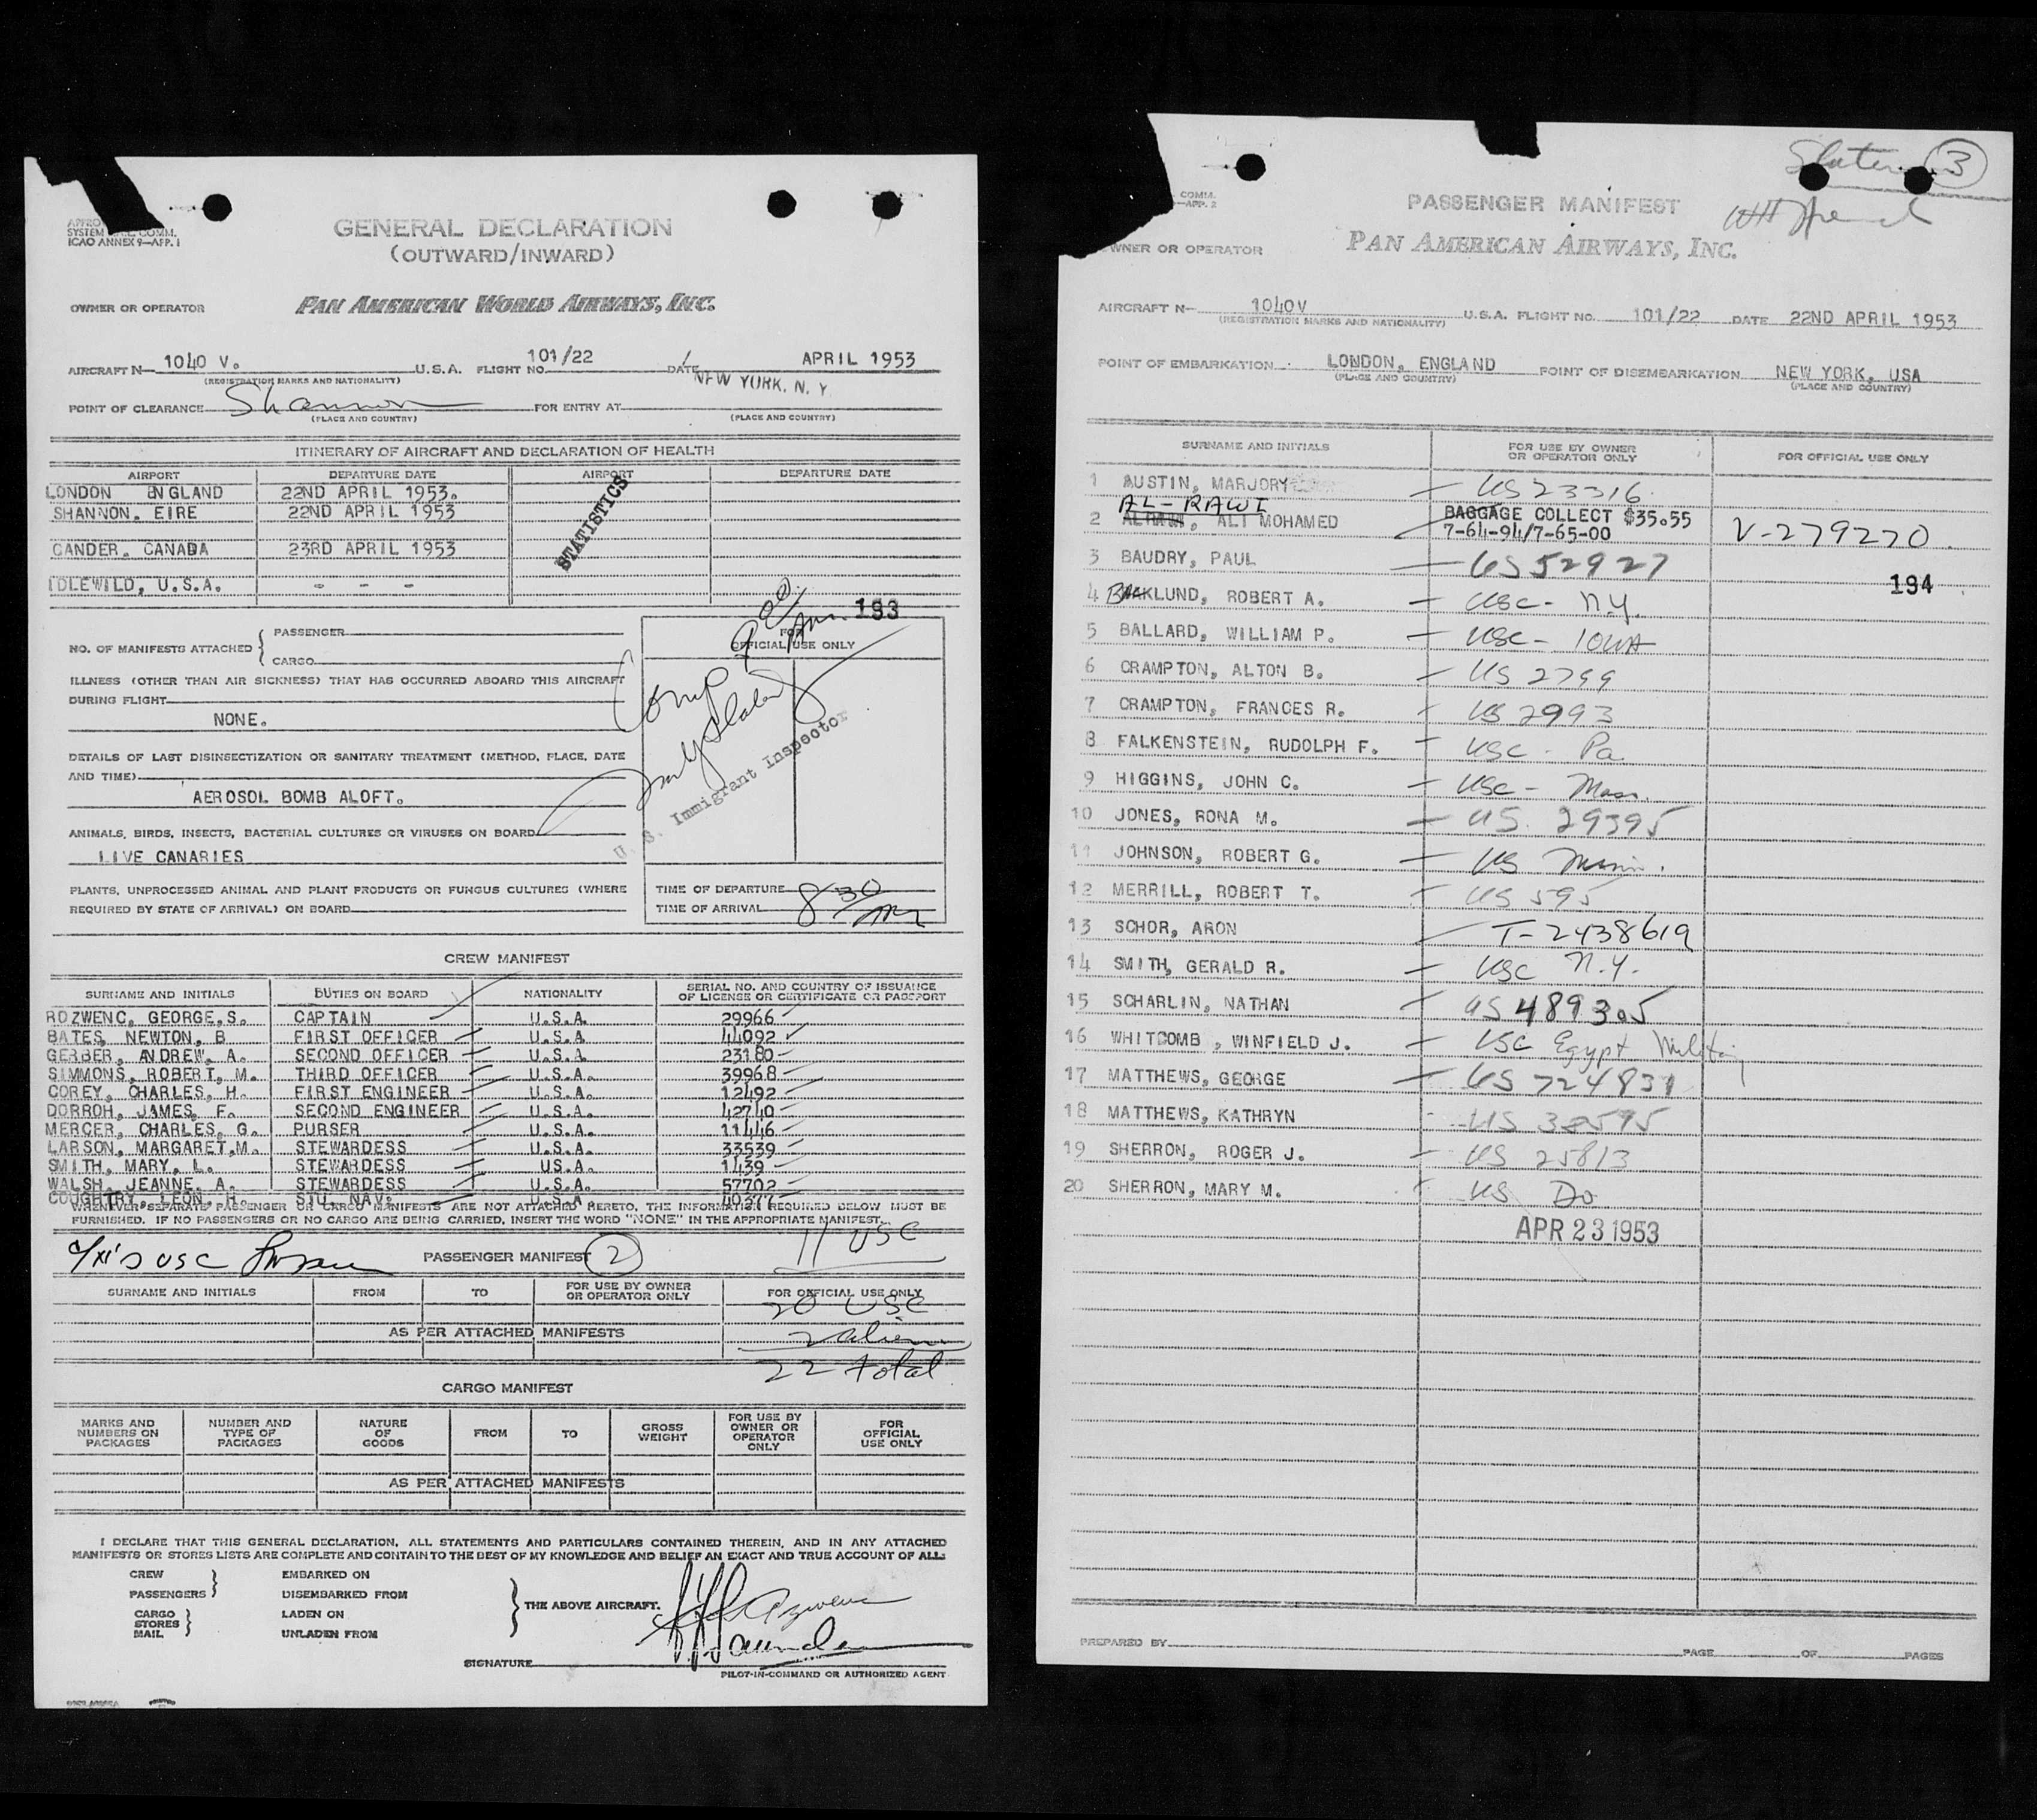 APPRO
SYSTEM COMM.
ICAO ANNEX 9—APP. 1
GENERAL DECLARATION
(OUTWARD/INWARD)
OWNER OR OPERATOR PAN AMERICAN WORLD AIRWAYS, INC.
AIRCRAFT N— 1040 V. U.S.A. FLIGHT NO. 101/22 DATE APRIL 1953
(REGISTRATION MARKS AND NATIONALITY)
NEW YORK, N. Y
POINT OF CLEARANCE Shannon FOR ENTRY AT
(PLACE AND COUNTRY) (PLACE AND COUNTRY)
ITINERARY OF AIRCRAFT AND DECLARATION OF HEALTH
AIRPORT DEPARTURE DATE AIRPORT DEPARTURE DATE
LONDON ENGLAND 22ND APRIL 1953.
SHANNON, EIRE 22ND APRIL 1953
GANDER, CANADA 23RD APRIL 1953
IDLEWILD, U.S.A. - - -
STATISTICS
193
NO. OF MANIFESTS ATTACHED { PASSENGER
CARGO
FOR
OFFICIAL USE ONLY
ILLNESS (OTHER THAN AIR SICKNESS) THAT HAS OCCURRED ABOARD THIS AIRCRAFT
DURING FLIGHT
NONE.
Comp
U. S. Immigrant Inspector
DETAILS OF LAST DISINSECTIZATION OR SANITARY TREATMENT (METHOD, PLACE, DATE
AND TIME)
AEROSOL BOMB ALOFT.
ANIMALS, BIRDS, INSECTS, BACTERIAL CULTURES OR VIRUSES ON BOARD
LIVE CANARIES
PLANTS, UNPROCESSED ANIMAL AND PLANT PRODUCTS OR FUNGUS CULTURES (WHERE
REQUIRED BY STATE OF ARRIVAL) ON BOARD
TIME OF DEPARTURE
TIME OF ARRIVAL 8 30
CREW MANIFEST
SURNAME AND INITIALS DUTIES ON BOARD NATIONALITY SERIAL NO. AND COUNTRY OF ISSUANCE
OF LICENSE OR CERTIFICATE OR PASSPORT
ROZWENC, GEORGE,S. CAPTAIN U.S.A. 29966
BATES, NEWTON, B FIRST OFFICER U.S.A. 44092
GERBER, ANDREW, A. SECOND OFFICER U.S.A. 23180
SIMMONS, ROBERT, M. THIRD OFFICER U.S.A. 39968
COREY, CHARLES, H. FIRST ENGINEER U.S.A. 12492
DORROH, JAMES, F. SECOND ENGINEER U.S.A. 42740
MERCER, CHARLES, G. PURSER U.S.A. 11446
LARSON, MARGARET,M. STEWARDESS U.S.A. 33539
SMITH, MARY, L. STEWARDESS US.A. 1439
WALSH, JEANNE, A. STEWARDESS U.S.A. 57702
COUGHTRY, LEON, H. STU. NAV. U.S.A. 40377
WHENEVER SEPARATE PASSENGER OR CARGO MANIFESTS ARE NOT ATTACHED HERETO, THE INFORMATION REQUIRED BELOW MUST BE
FURNISHED. IF NO PASSENGERS OR NO CARGO ARE BEING CARRIED, INSERT THE WORD "NONE" IN THE APPROPRIATE MANIFEST.
USC PASSENGER MANIFEST 2 11 USC
SURNAME AND INITIALS FROM TO FOR USE BY OWNER
OR OPERATOR ONLY FOR OFFICIAL USE ONLY
20 USC
AS PER ATTACHED MANIFESTS 2 alien
22 total
CARGO MANIFEST
MARKS AND
NUMBERS ON
PACKAGES NUMBER AND
TYPE OF
PACKAGES NATURE
OF
GOODS FROM TO GROSS
WEIGHT FOR USE BY
OWNER OR
OPERATOR
ONLY FOR
OFFICIAL
USE ONLY
AS PER ATTACHED MANIFESTS
I DECLARE THAT THIS GENERAL DECLARATION, ALL STATEMENTS AND PARTICULARS CONTAINED THEREIN, AND IN ANY ATTACHED
MANIFESTS OR STORES LISTS ARE COMPLETE AND CONTAIN TO THE BEST OF MY KNOWLEDGE AND BELIEF AN EXACT AND TRUE ACCOUNT OF ALL:
CREW EMBARKED ON
PASSENGERS DISEMBARKED FROM
CARGO LADEN ON
STORES
MAIL UNLADEN FROM
THE ABOVE AIRCRAFT.
SIGNATURE
PILOT-IN-COMMAND OR AUTHORIZED AGENT
Slater 3
COMM.
—APP. 2
PASSENGER MANIFEST
WNER OR OPERATOR PAN AMERICAN AIRWAYS, INC.
AIRCRAFT N— 1040V U.S.A. FLIGHT NO. 101/22 DATE 22ND APRIL 1953
(REGISTRATION MARKS AND NATIONALITY)
POINT OF EMBARKATION LONDON, ENGLAND POINT OF DISEMBARKATION NEW YORK, USA
(PLACE AND COUNTRY) (PLACE AND COUNTRY)
SURNAME AND INITIALS FOR USE BY OWNER
OR OPERATOR ONLY FOR OFFICIAL USE ONLY
1 AUSTIN, MARJORY — US 23316
AL-RAWI
2 , ALI MOHAMED BAGGAGE COLLECT $35.55
7-64-94/7-65-00 V-279270
3 BAUDRY, PAUL — US 52927
194
4 BAKLUND, ROBERT A. — USC - N.Y.
5 BALLARD, WILLIAM P. — USC - IOWA
6 CRAMPTON, ALTON B. — US 2799
7 CRAMPTON, FRANCES R. - US 2993
8 FALKENSTEIN, RUDOLPH F. - USC - Pa.
9 HIGGINS, JOHN C. - USC - Mass.
10 JONES, RONA M. — US. 29395
11 JOHNSON, ROBERT G. — US
12 MERRILL, ROBERT T. - US 595
13 SCHOR, ARON T-2438619
14 SMITH, GERALD R. - USC N.Y.
15 SCHARLIN, NATHAN - US 489305
16 WHITCOMB , WINFIELD J. - USC Egypt
17 MATTHEWS, GEORGE — US 724831
18 MATTHEWS, KATHRYN - US 38595
19 SHERRON, ROGER J. - US 25813
20 SHERRON, MARY M. US Do
APR 23 1953
PREPARED BY PAGE OF PAGES